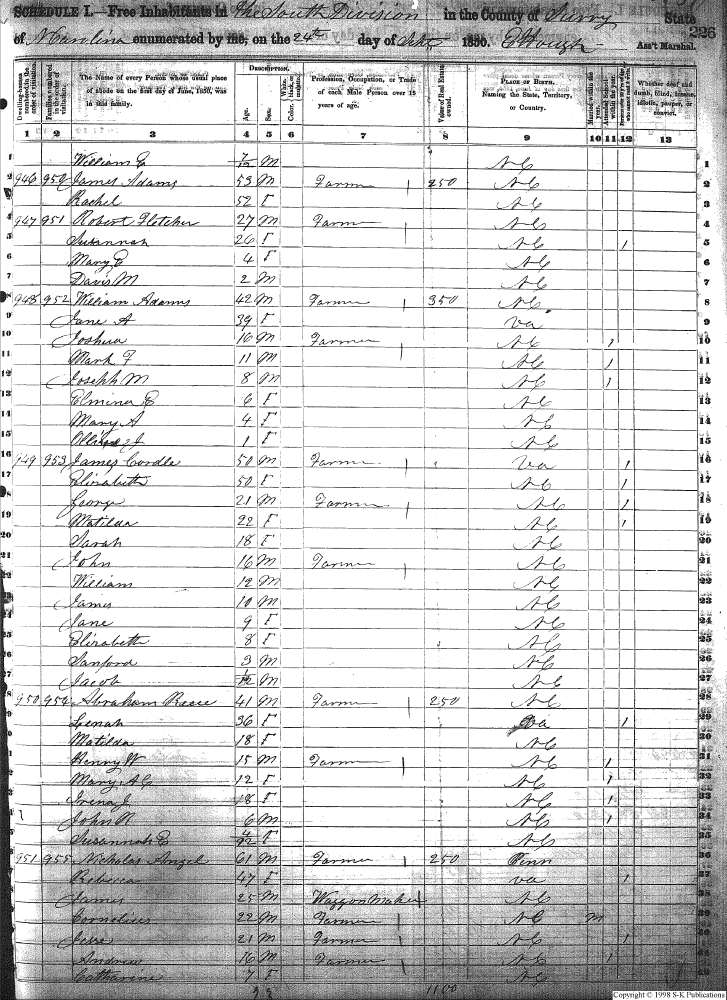 SCHEDULE I.—Free Inhabitants in the South Division in the County of Surry State
of N Carolina enumerated by me, on the 24th day of Sept 1850. Ass't Marshal. 226
Dwelling-houses numbered in the order of visitation.
Families numbered in the order of visitation.
The Name of every Person whose usual place of abode on the first day of June, 1850, was in this family.
DESCRIPTION.
Age.
Sex.
Color, White, black, or mulatto.
Profession, Occupation, or Trade of each Male Person over 15 years of age.
Value of Real Estate owned.
PLACE OF BIRTH. Naming the State, Territory, or Country.
Married within the year.
Attended School within the year.
Whether deaf and dumb, blind, insane, idiotic, pauper, or convict.
1 2 3 4 5 6 7 8 9 10 11 12 13
1 William E 7/12 M NC 1
2 946 950 James Adams 53 M Farmer 1 250 NC 2
3 Rachel 52 F NC 3
4 947 951 Robert Fletcher 27 M Farmer 1 NC 4
5 Susannah 26 F NC 1 5
6 Mary E 4 F NC 6
7 Davis M 2 M NC 7
8 948 952 William Adams 42 M Farmer 1 350 NC 8
9 Jane A 39 F Va 9
10 Joshua 16 M Farmer 1 NC 1 10
11 Mark F 11 M NC 1 11
12 Joseph M 8 M NC 1 12
13 Elmina E 6 F NC 13
14 Mary A 4 F NC 14
15 J 1 F NC 15
16 949 953 James Cordle 50 M Farmer 1 Va 1 16
17 Elizabeth 50 F NC 1 17
18 George 21 M Farmer 1 NC 1 18
19 Matilda 22 F NC 1 19
20 Sarah 18 F NC 20
21 John 16 M Farmer 1 NC 21
22 William 12 M NC 22
23 James 10 M NC 23
24 Jane 9 F NC 24
25 Elizabeth 8 F NC 25
26 Sanford 3 M NC 26
27 Jacob M NC 27
28 950 954 Abraham Reece 41 M Farmer 1 250 NC 28
29 Lenah 36 F Va 1 29
30 Matilda 18 F NC 30
31 Henry W 15 M Farmer 1 NC 1 31
32 Mary A C 12 F NC 1 32
33 Irena J 8 F NC 1 33
34 John R 6 M NC 1 34
35 Susannah E 4/12 F NC 35
36 951 955 Nicholas Angel 61 M Farmer 1 250 Penn 36
37 Rebecca 47 F Va 1 37
38 James 25 M Waggon Maker 1 NC 38
39 Cornelius 22 M Farmer 1 NC M 39
40 Jesse 21 M Farmer 1 NC 1 40
41 Andrew 16 M Farmer 1 NC 41
42 Catharine 7 F NC 42
1100
Copyright © 1998 S-K Publications